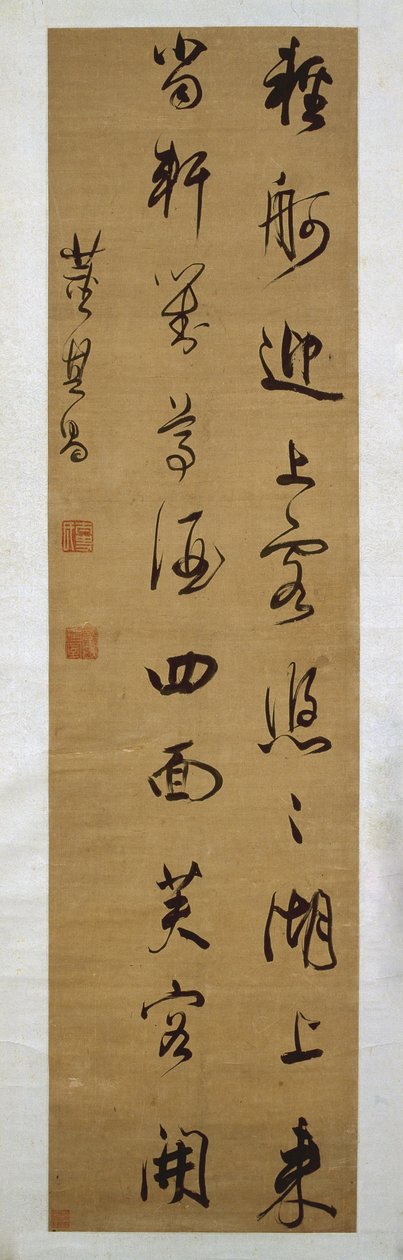 輕舸迎上客悠〻湖上來
當軒對尊酒四面芙容開
董其昌